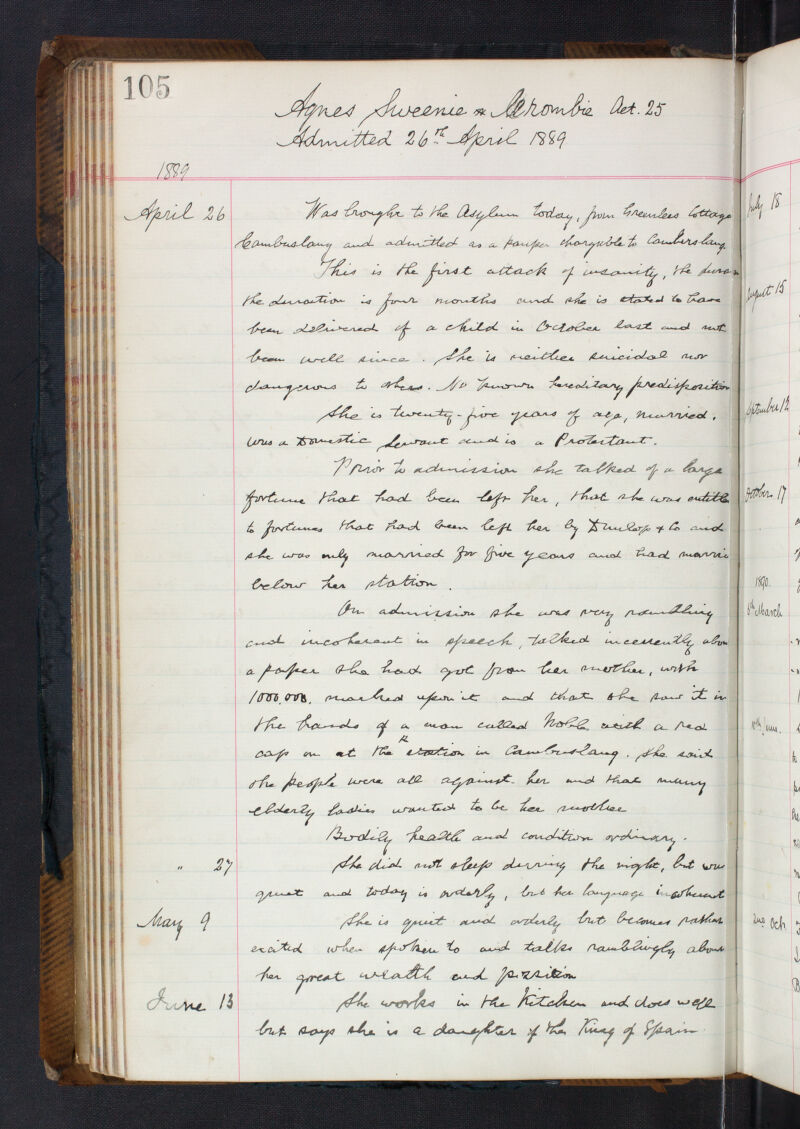 105
Agnes Sweenie or Abrombie Aet. 25
Admitted 26th April 1889
1889
April 26 Was brought to the Asylum today, from Greenlees Cottage
Cambuslang and admitted as a pauper chargable to Cambuslang.
This is the first attack of insanity, the
the duration is four months and she is stated to have
been delivered of a child in October last and not
been well since. She is neither suicidal nor
dangerous to others. No known hereditary predisposition
She is twenty-five years of age, married,
was a Domestic Servant and is a Protestant.
Prior to admission she talked of a large
fortune that had been left her, that she was
to fortunes that had been left her by Dunlop & Co and
she was only married for five years and had
below her station.
On admission she was very rambling
and incoherent in speech, talked incessently
a paper she had got from her mother, with
1000,000. marked upon it and that she saw it in
the hands of a man called Noble with a red
cap on at the station in Cambuslang. She said
the people were all against her and that many
elderly ladies wanted to be her mother
Bodily health and condition ordinary.
" 27 She did not sleep during the night, but was
quiet and today is orderly, but her language incoherent
May 9 She is quiet and orderly but becomes rather
exited when spoken to and talks ramblingly about
her great wealth and position
June 13 She works in the Kitchen and does well
but says she is a daughter of the King of Spain.
July 18
August 15
September 12
October 17
1890.
5th March
10th June.
2nd Oct